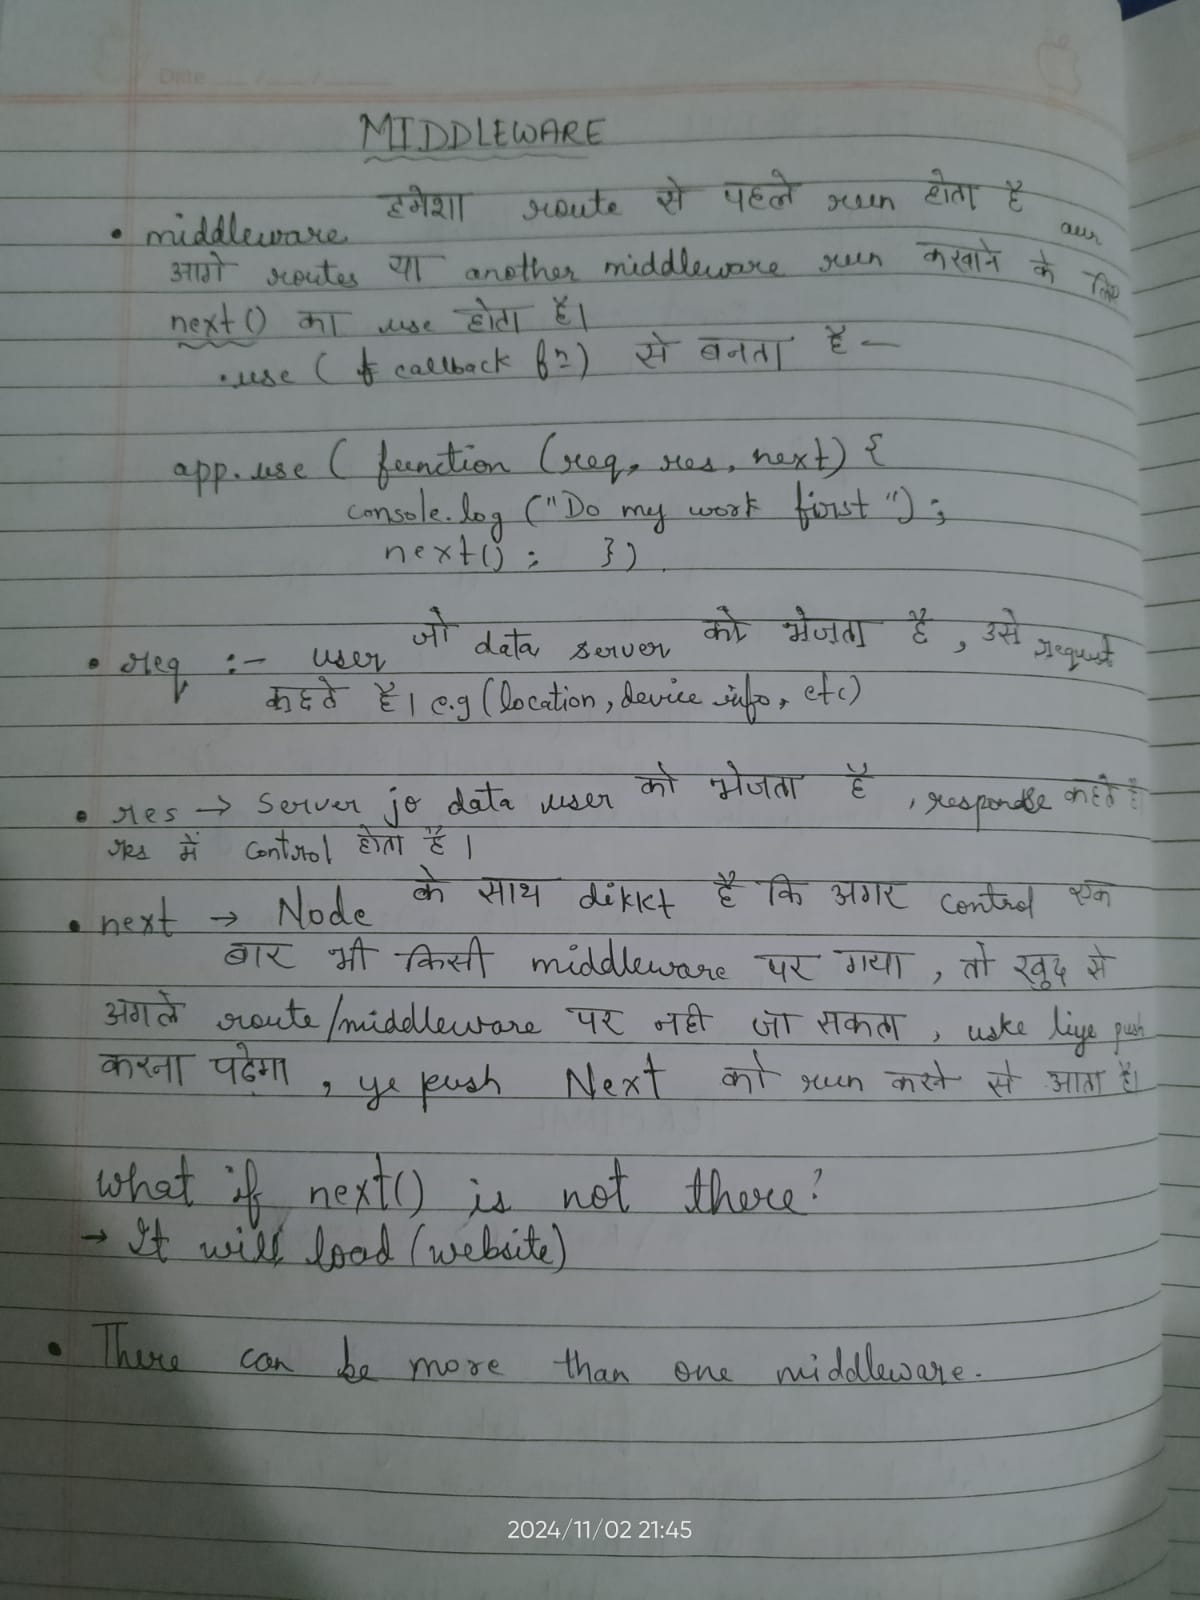 Date ___/___/___
MIDDLEWARE
• middleware हमेशा route से पहले run होता है aur
आगे routes या another middleware run करवाने के लिए
next() का use होता है।
.use ( callback fn) से बनता है —
app.use ( function (req, res, next) {
console.log ("Do my work first");
next() ; })
• req :- user जो data server को भेजता है, उसे request
कहते है। e.g (location, device info, etc)
• res → server jo data user को भेजता है, response कहते है।
res में control होता है।
• next → Node के साथ dikkt है कि अगर control एक
बार भी किसी middleware पर गया, तो खुद से
अगले route/middleware पर नही जा सकता, uske liye push
करना पढ़ेगा, ye push Next को run करने से आता है।
What if next() is not there?
→ It will load (website)
• There can be more than one middleware.
2024/11/02 21:45